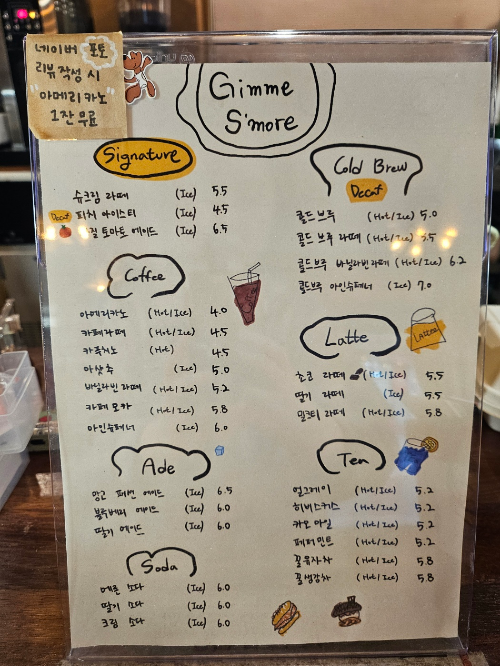 네이버 포토
리뷰 작성 시
"아메리카노"
1잔 무료
Gimme
S'more
Signature
슈크림 라떼 (Ice) 5.5
Decaf 피치 아이스티 (Ice) 4.5
토마토 에이드 (Ice) 6.5
Coffee
아메리카노 (Hot/Ice) 4.0
카페라떼 (Hot/Ice) 4.5
카푸치노 (Hot) 4.5
아샷추 (Ice) 5.0
바닐라빈 라떼 (Hot/Ice) 5.2
카페 모카 (Hot/Ice) 5.8
아인슈페너 (Ice) 6.0
Ade
망고 패션 에이드 (Ice) 6.5
블루베리 에이드 (Ice) 6.0
딸기 에이드 (Ice) 6.0
Soda
메론 소다 (Ice) 6.0
딸기 소다 (Ice) 6.0
크림 소다 (Ice) 6.0
Cold Brew
Decaf
콜드브루 (Hot/Ice) 5.0
콜드 브루 라떼 (Hot/Ice) 5.5
콜드브루 바닐라빈라떼 (Hot/Ice) 6.2
콜드브루 아인슈페너 (Ice) 7.0
Latte
초코 라떼 (Hot/Ice) 5.5
딸기 라떼 (Ice) 5.5
밀크티 라떼 (Hot/Ice) 5.8
Tea
얼그레이 (Hot/Ice) 5.2
히비스커스 (Hot/Ice) 5.2
카모마일 (Hot/Ice) 5.2
페퍼민트 (Hot/Ice) 5.2
꿀유자차 (Hot/Ice) 5.8
꿀생강차 (Hot/Ice) 5.8